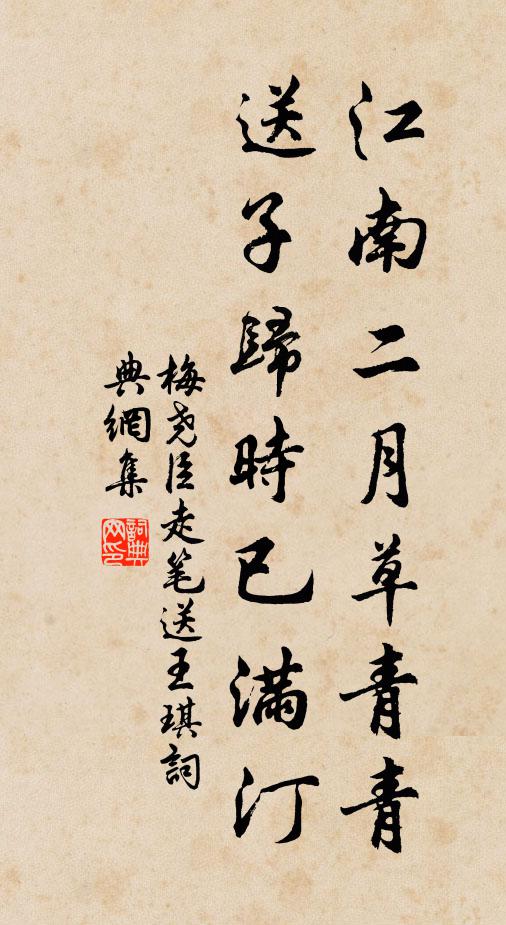 江南二月草青青
送子歸時已滿汀
梅尧臣走笔送王琪詞
典網集
詞典
网印